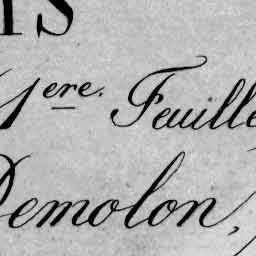 IS
1ere. Feuille
Demolon,